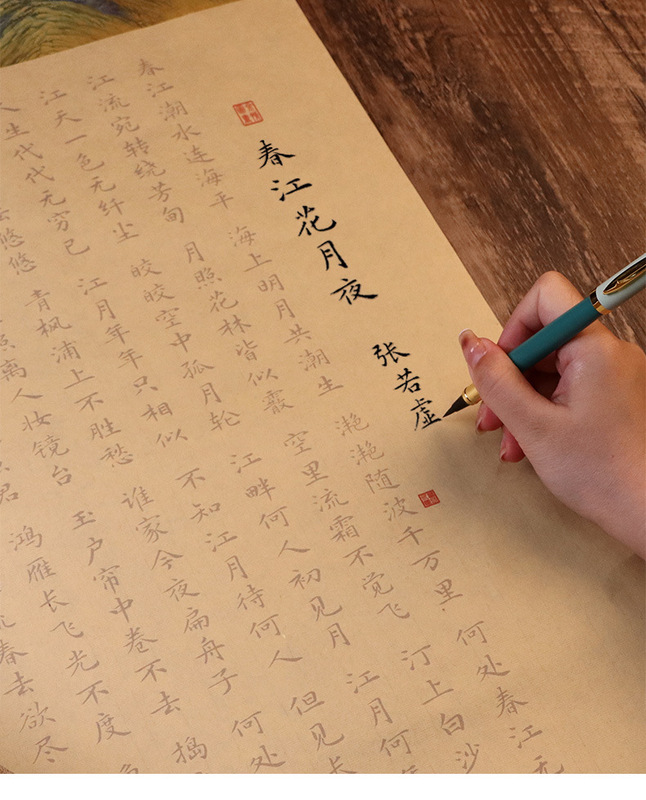 春江花月夜 张若虚
春江潮水连海平 海上明月共潮生 滟滟随波千万里 何处春江无
江流宛转绕芳甸 月照花林皆似霰 空里流霜不觉飞 汀上白沙
江天一色无纤尘 皎皎空中孤月轮 江畔何人初见月 江月何年
人生代代无穷已 江月年年只相似 不知江月待何人 但见长
悠悠 青枫浦上不胜愁 谁家今夜扁舟子 何处
照离人妆镜台 玉户帘中卷不去 捣
君 鸿雁长飞光不度
流春去欲尽